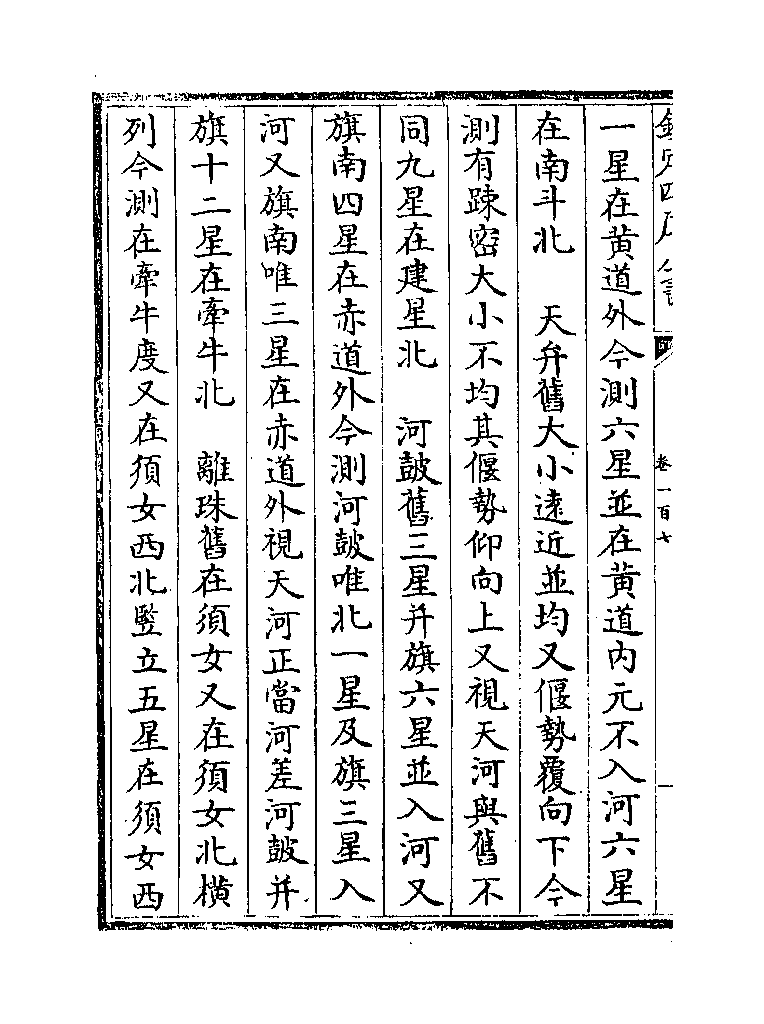 欽定四庫全書 卷一百七
一星在黄道外今測六星並在黄道内元不入河六星
在南斗北　天弁舊大小遠近並均又偃勢覆向下今
測有踈密大小不均其偃勢仰向上又視天河與舊不
同九星在建星北　河皷舊三星并旗六星並入河又
旗南四星在赤道外今測河皷唯北一星及旗三星入
河又旗南唯三星在赤道外視天河正當河差河皷并
旗十二星在牽牛北　離珠舊在須女又在須女北橫
列今測在牽牛度又在須女西北竪立五星在須女西